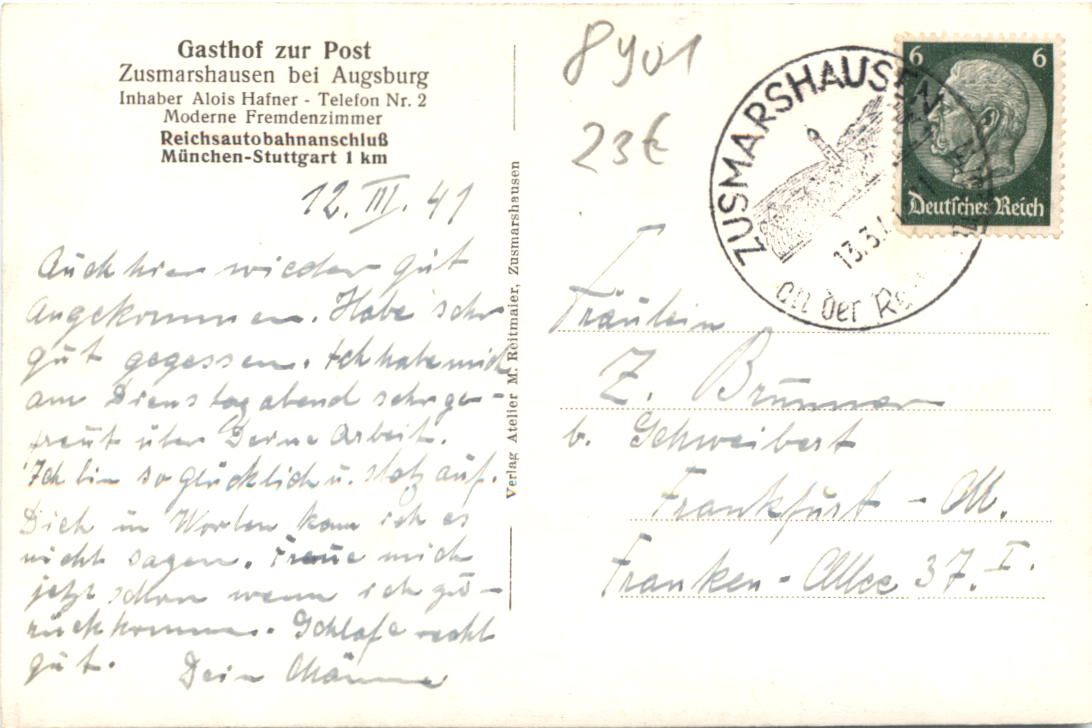 Gasthof zur Post
Zusmarshausen bei Augsburg
Inhaber Alois Hafner - Telefon Nr. 2
Moderne Fremdenzimmer
Reichsautobahnanschluß
München-Stuttgart 1 km
12. III. 41
Auch hier wieder gut
angekommen. Habe sehr
gut gegessen. Ich habe mich
am Dienstag abend sehr ge-
freut über Deine Arbeit.
Ich bin so glücklich u. stolz auf.
Dich in Worten kann ich es
nicht sagen. Freue mich
jetzt schon wenn ich zu-
rückkomme. Schlafe recht
gut. Dein Männe
Verlag Atelier M. Reitmaier, Zusmarshausen
8901
23€
ZUSMARSHAUSEN
13.3.
an der Re
6 6
Deutsches Reich
Fräulein
Z. Brunner
b. Schweibert
Frankfurt - M.
Franken-Allee 37. I.